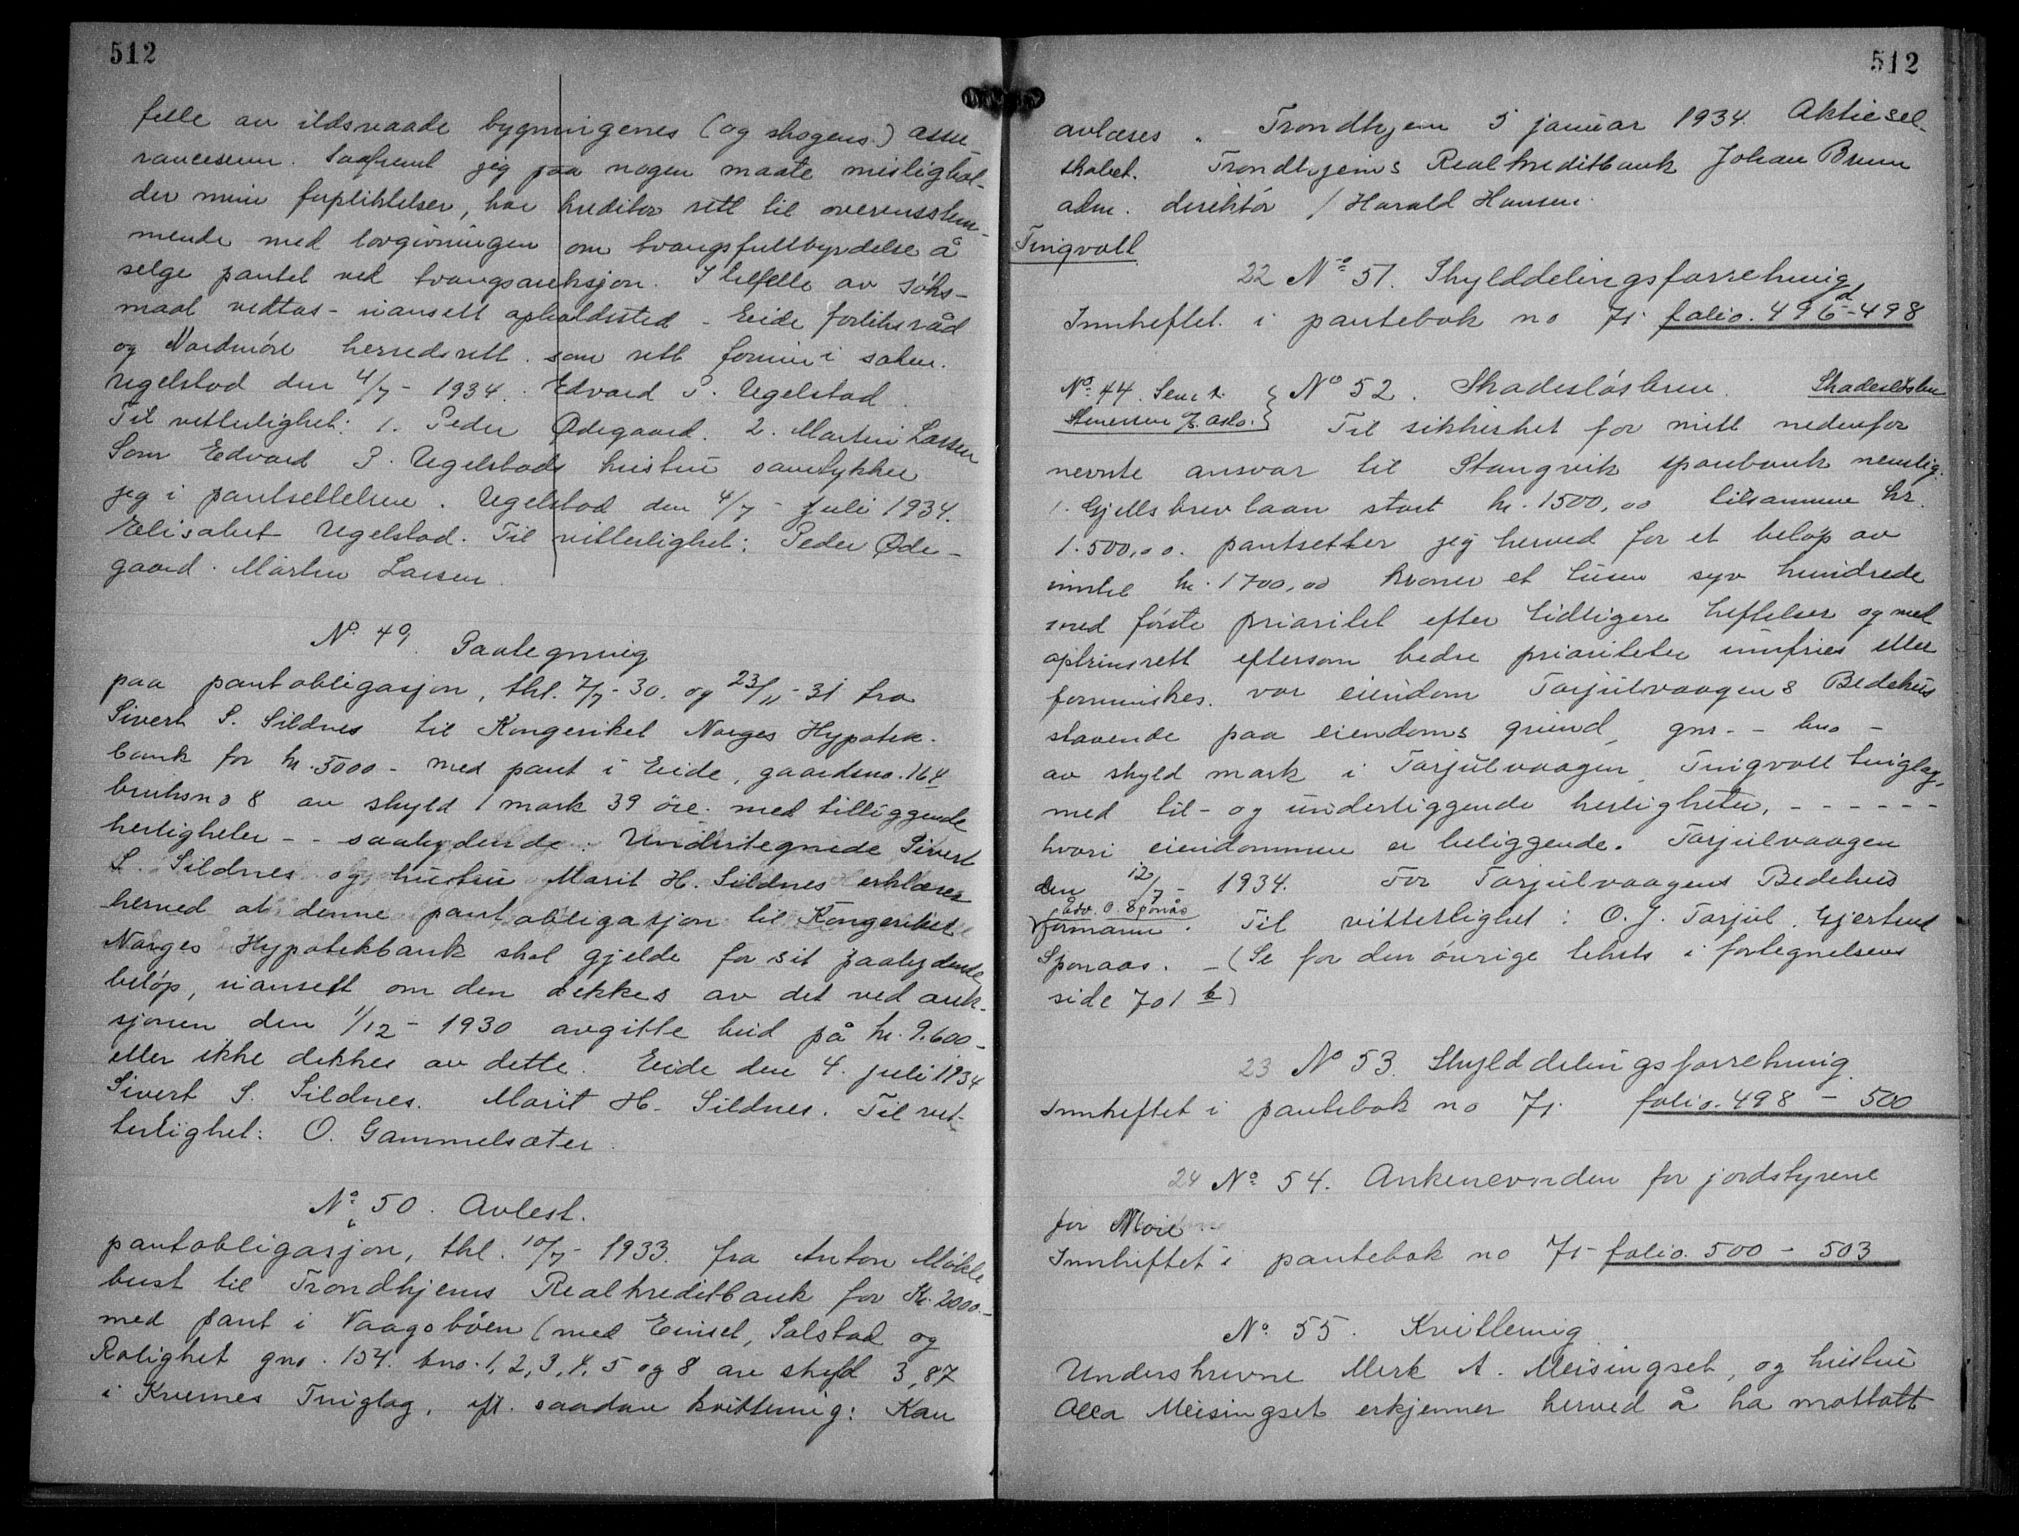 512
felle av ildsvaade bygningenes (og skogens) assu-
ransesum. Saafremt jeg paa nogen maate mislighol-
der mine forpliktelser, har kreditor rett til overensstem-
mende med lovgivningen om tvangsfullbyrdelse å
selge pantet ved tvangsauksjon. I tilfelle av søks-
maal vedtas - uansett opholdssted - Eide forliksråd
og Nordmøre herredsrett som rett forum i saken.
Ugelstad den 4/7 - 1934. Edvard P. Ugelstad.
Til vitterlighet: 1. Peder Ødegaard. 2. Martin Larsen
Som Edvard P. Ugelstads hustru samtykker
jeg i pantsettelsen. Ugelstad den 4/7 - juli 1934.
Elisabet Ugelstad. Til vitterlighet: Peder Øde-
gaard. Martin Larsen.
No 49. Paategning
paa pantobligasjon, thl. 7/7 - 30. og 23/11 - 31 fra
Sivert S. Sildnes til Kongeriket Norges Hypotek-
bank for kr. 5000 - med pant i Eide, gaardsno. 164
bruksno 8 av skyld 1 mark 39 øre. med tilliggende
herligheter - - saalydende: Undertegnede Sivert
S. Sildnes og hustru Marit H. Sildnes erklærer
herved at denne pantobligasjon til Kongeriket
Norges Hypotekbank skal gjelde for sit paalydende
beløp, uansett om den dekkes av det ved auk-
sjonen den 1/12 - 1930 avgitte bud på kr. 9.600 -
eller ikke dekkes av dette. Eide den 4. juli 1934
Sivert S. Sildnes. Marit H. Sildnes. Til vit-
terlighet: O. Gammelsæter.
No 50. Avlest.
pantobligasjon, thl. 10/7 - 1933. fra Anton Møkle
bust til Trondhjems Realkreditbank for Kr. 2000.-
med pant i Vaagsbøen (med Einset, Solstad og
Rolighet gno. 154. bno. 1, 2, 3, 4, 5 og 8 av skyld 3,87
i Kvernes Tinglag, eft. saadan kvittering: Kan
512
avlæses. Trondhjem 5 januar 1934. Aktiesel-
skabet. Trondhjems Realkreditbank Johan Bruun
adm. direktør / Harald Hansen.
Tingvoll
22 No 51. Skylddelingsforretning
Innheftet i pantebok no 71. folio. 496d - 498
No 44. Sene t.
Stenersen Z. Oslo. } No 52. Skadesløsbrev. Skadesløsbrev
Til sikkerhet for mitt nedenfor
nevnte ansvar til Stangvik sparebank nemlig:
1. Gjeldsbrevlaan stort kr. 1500,00 tilsammen kr.
1.500,00. pantsetter jeg herved for et beløp av
inntil kr. 1700,00 kroner et tusen syv hundrede
med første prioritet efter tidligere heftelser og med
optrinsrett eftersom bedre prioriteter innfries eller
forminskes. vor eiendom Torjulvaagens Bedehus
staaende paa eiendoms grund, gnr. - bno -
av skyld mark i Torjulvaagen, Tingvoll tinglag,
med til- og underliggende herligheter, - - - - - -
hvori eiendommen er beliggende. Torjulvaagen
den 12/7 - 1934. For Torjulvaagens Bedehus
Edv. O. Sponås
formann. Til vitterlighet: O. J. Torjul. Gjertrud
Sponaas. - (Se for den øvrige tekst i fortegnelsens
side 701 b)
23 No 53. Skylddelingsforretning.
Innheftet i pantebok no 71. folio. 498 - 500
24 No 54. Ankenevnden for jordstyrene
for Møre
Innheftet i pantebok no 71 - folio. 500 - 503
No 55. Kvittering.
Underskrevne Merk A. Meisingset, og hustru
Olea Meisingset erkjenner herved å ha mottatt